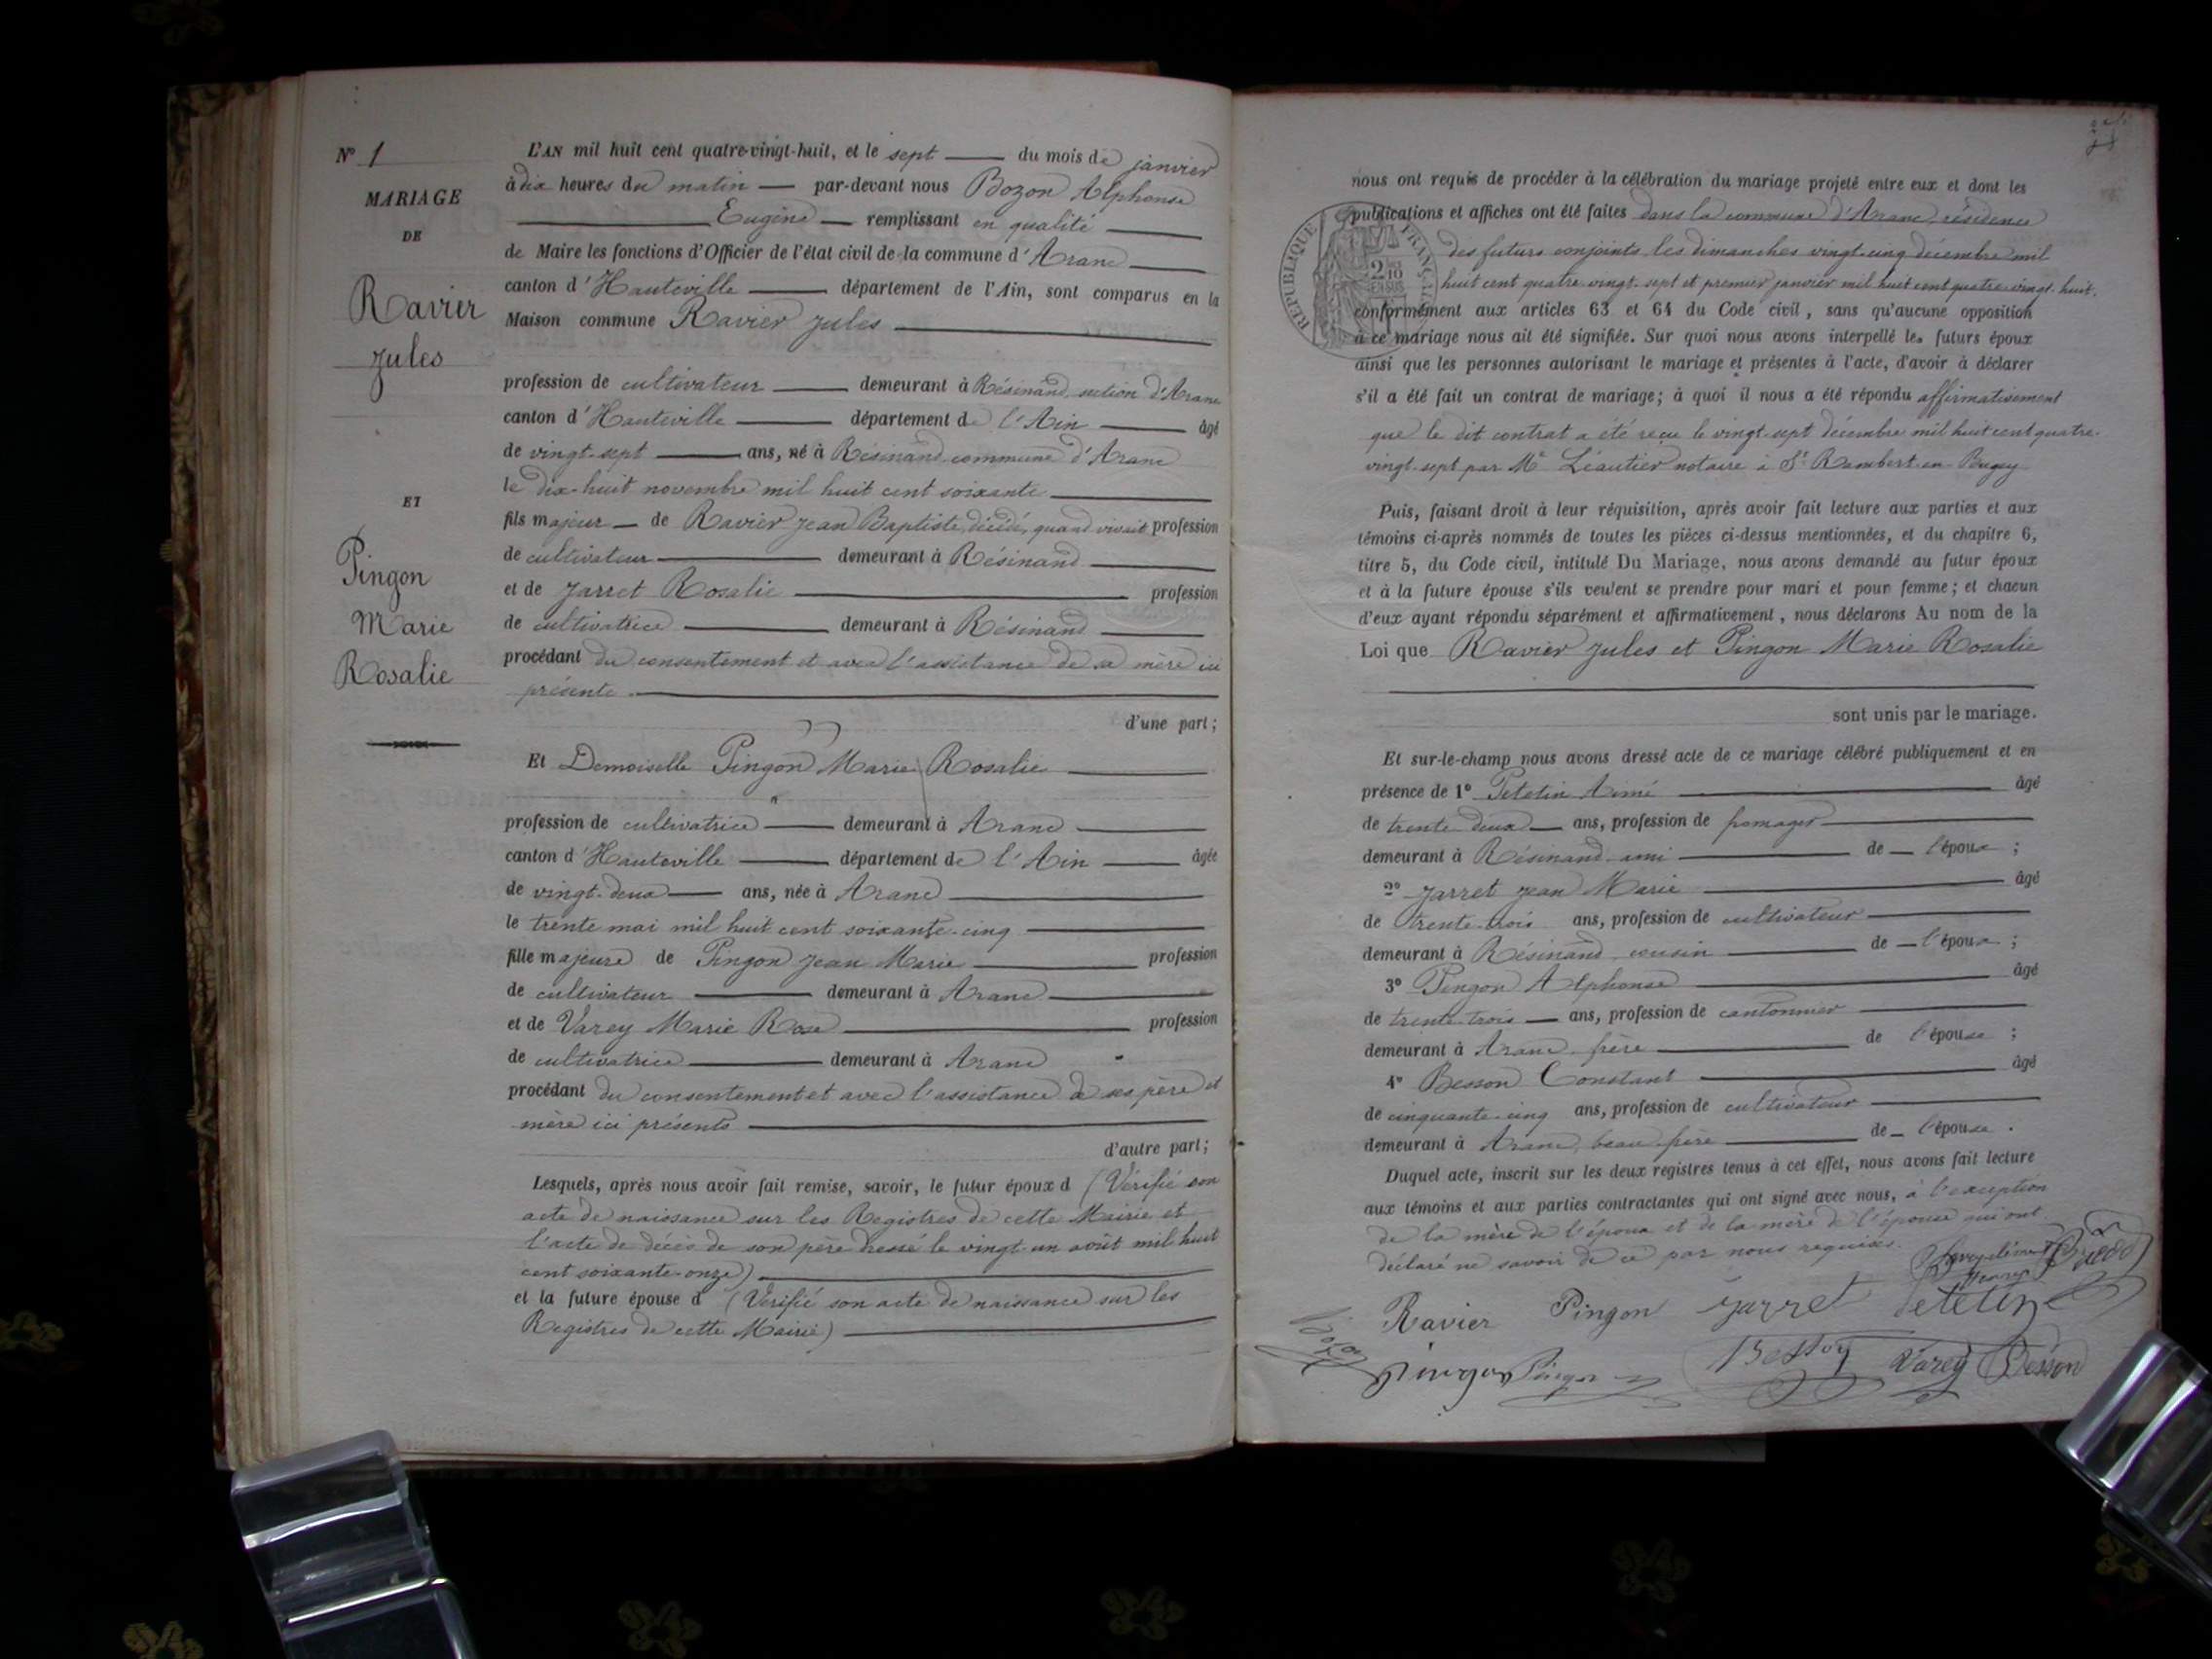 N° 1
MARIAGE
DE
Ravier
Jules
ET
Pingon
Marie
Rosalie
L'AN mil huit cent quatre-vingt-huit, et le sept du mois de janvier
à dix heures du matin par-devant nous Bozon Alphonse
Eugène remplissant en qualité
de Maire les fonctions d'Officier de l'état civil de la commune d'Aranc
canton d'Hauteville département de l'Ain, sont comparus en la
Maison commune Ravier Jules
profession de cultivateur demeurant à Résinand, section d'Aranc
canton d'Hauteville département de l'Ain âgé
de vingt-sept ans, né à Résinand commune d'Aranc
le dix-huit novembre mil huit cent soixante
fils majeur de Ravier Jean Baptiste, décédé, quand vivait profession
de cultivateur demeurant à Résinand
et de Jarret Rosalie profession
de cultivatrice demeurant à Résinand
procédant du consentement et avec l'assistance de sa mère ici
présente
d'une part;
Et Demoiselle Pingon Marie Rosalie
profession de cultivatrice demeurant à Aranc
canton d'Hauteville département de l'Ain âgée
de vingt-deux ans, née à Aranc
le trente mai mil huit cent soixante-cinq
fille majeure de Pingon Jean Marie profession
de cultivateur demeurant à Aranc
et de Varey Marie Rose profession
de cultivatrice demeurant à Aranc
procédant du consentement et avec l'assistance de ses père et
mère ici présents
d'autre part;
Lesquels, après nous avoir fait remise, savoir, le futur époux d (Vérifié son
acte de naissance sur les Registres de cette Mairie et
l'acte de décès de son père dressé le vingt-un août mil huit
cent soixante-onze)
et la future épouse d (Vérifié son acte de naissance sur les
Registres de cette Mairie)
nous ont requis de procéder à la célébration du mariage projeté entre eux et dont les
publications et affiches ont été faites dans la commune d'Aranc, résidence
des futurs conjoints les dimanches vingt-cinq décembre mil
huit cent quatre-vingt-sept et premier janvier mil huit cent quatre-vingt-huit.
RÉPUBLIQUE FRANÇAISE
conformément aux articles 63 et 64 du Code civil, sans qu'aucune opposition
à ce mariage nous ait été signifiée. Sur quoi nous avons interpellé les futurs époux
ainsi que les personnes autorisant le mariage et présentes à l'acte, d'avoir à déclarer
s'il a été fait un contrat de mariage; à quoi il nous a été répondu affirmativement
que le dit contrat a été reçu le vingt-sept décembre mil huit cent quatre-
vingt-sept par Me Léautier notaire à St Rambert-en-Bugey
Puis, faisant droit à leur réquisition, après avoir fait lecture aux parties et aux
témoins ci-après nommés de toutes les pièces ci-dessus mentionnées, et du chapitre 6,
titre 5, du Code civil, intitulé Du Mariage, nous avons demandé au futur époux
et à la future épouse s'ils veulent se prendre pour mari et pour femme; et chacun
d'eux ayant répondu séparément et affirmativement, nous déclarons Au nom de la
Loi que Ravier Jules et Pingon Marie Rosalie
sont unis par le mariage.
Et sur-le-champ nous avons dressé acte de ce mariage célébré publiquement et en
présence de 1° Petetin Aimé âgé
de trente-deux ans, profession de fromager
demeurant à Résinand ami de l'époux ;
2° Jarret Jean Marie âgé
de trente-trois ans, profession de cultivateur
demeurant à Résinand, cousin de l'époux ;
3° Pingon Alphonse âgé
de trente-trois ans, profession de cantonnier
demeurant à Aranc, frère de l'épouse ;
4° Besson Constant âgé
de cinquante-cinq ans, profession de cultivateur
demeurant à Aranc, beau-frère de l'épouse .
Duquel acte, inscrit sur les deux registres tenus à cet effet, nous avons fait lecture
aux témoins et aux parties contractantes qui ont signé avec nous, à l'exception
de la mère de l'époux et de la mère de l'épouse qui ont
déclaré ne savoir de ce par nous requises.
Ravier Pingon Jarret Petetin
Pingon Pingon Varey Besson